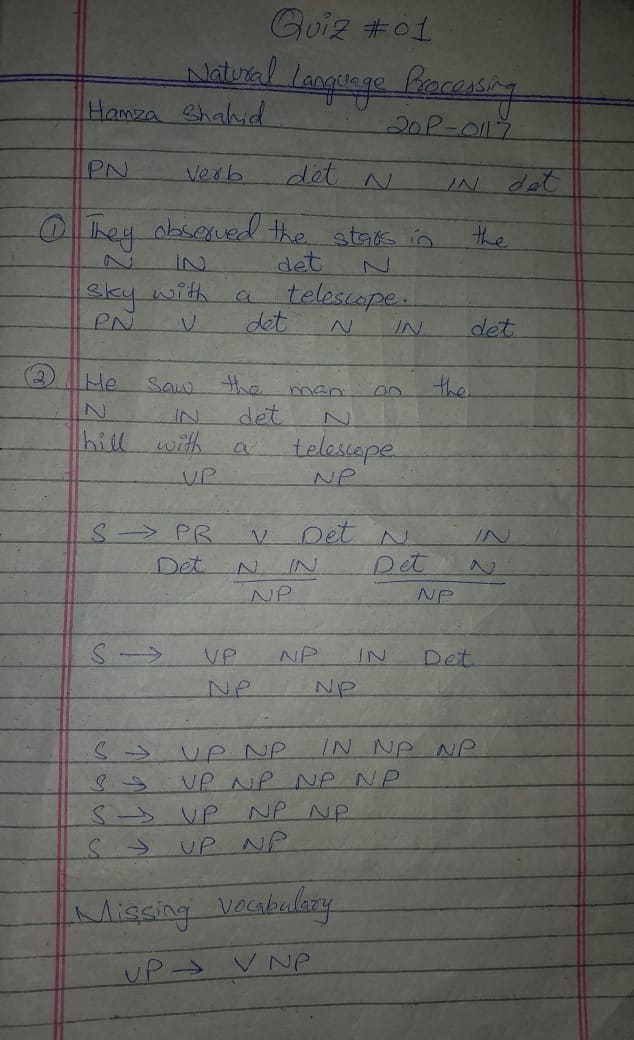 Quiz #01
Natural Language Processing
Hamza Shahid 20P-0117
PN verb det N IN det
① They observed the stars in the
N IN det N
sky with a telescope.
PN V det N IN det
② He saw the man on the
N IN det N
hill with a telescope
VP NP
S → PR V Det N IN
Det N IN Det N
NP NP
S → VP NP IN Det
NP NP
S → VP NP IN NP NP
S → VP NP NP NP
S → VP NP NP
S → VP NP
Missing Vocabulary
VP → V NP